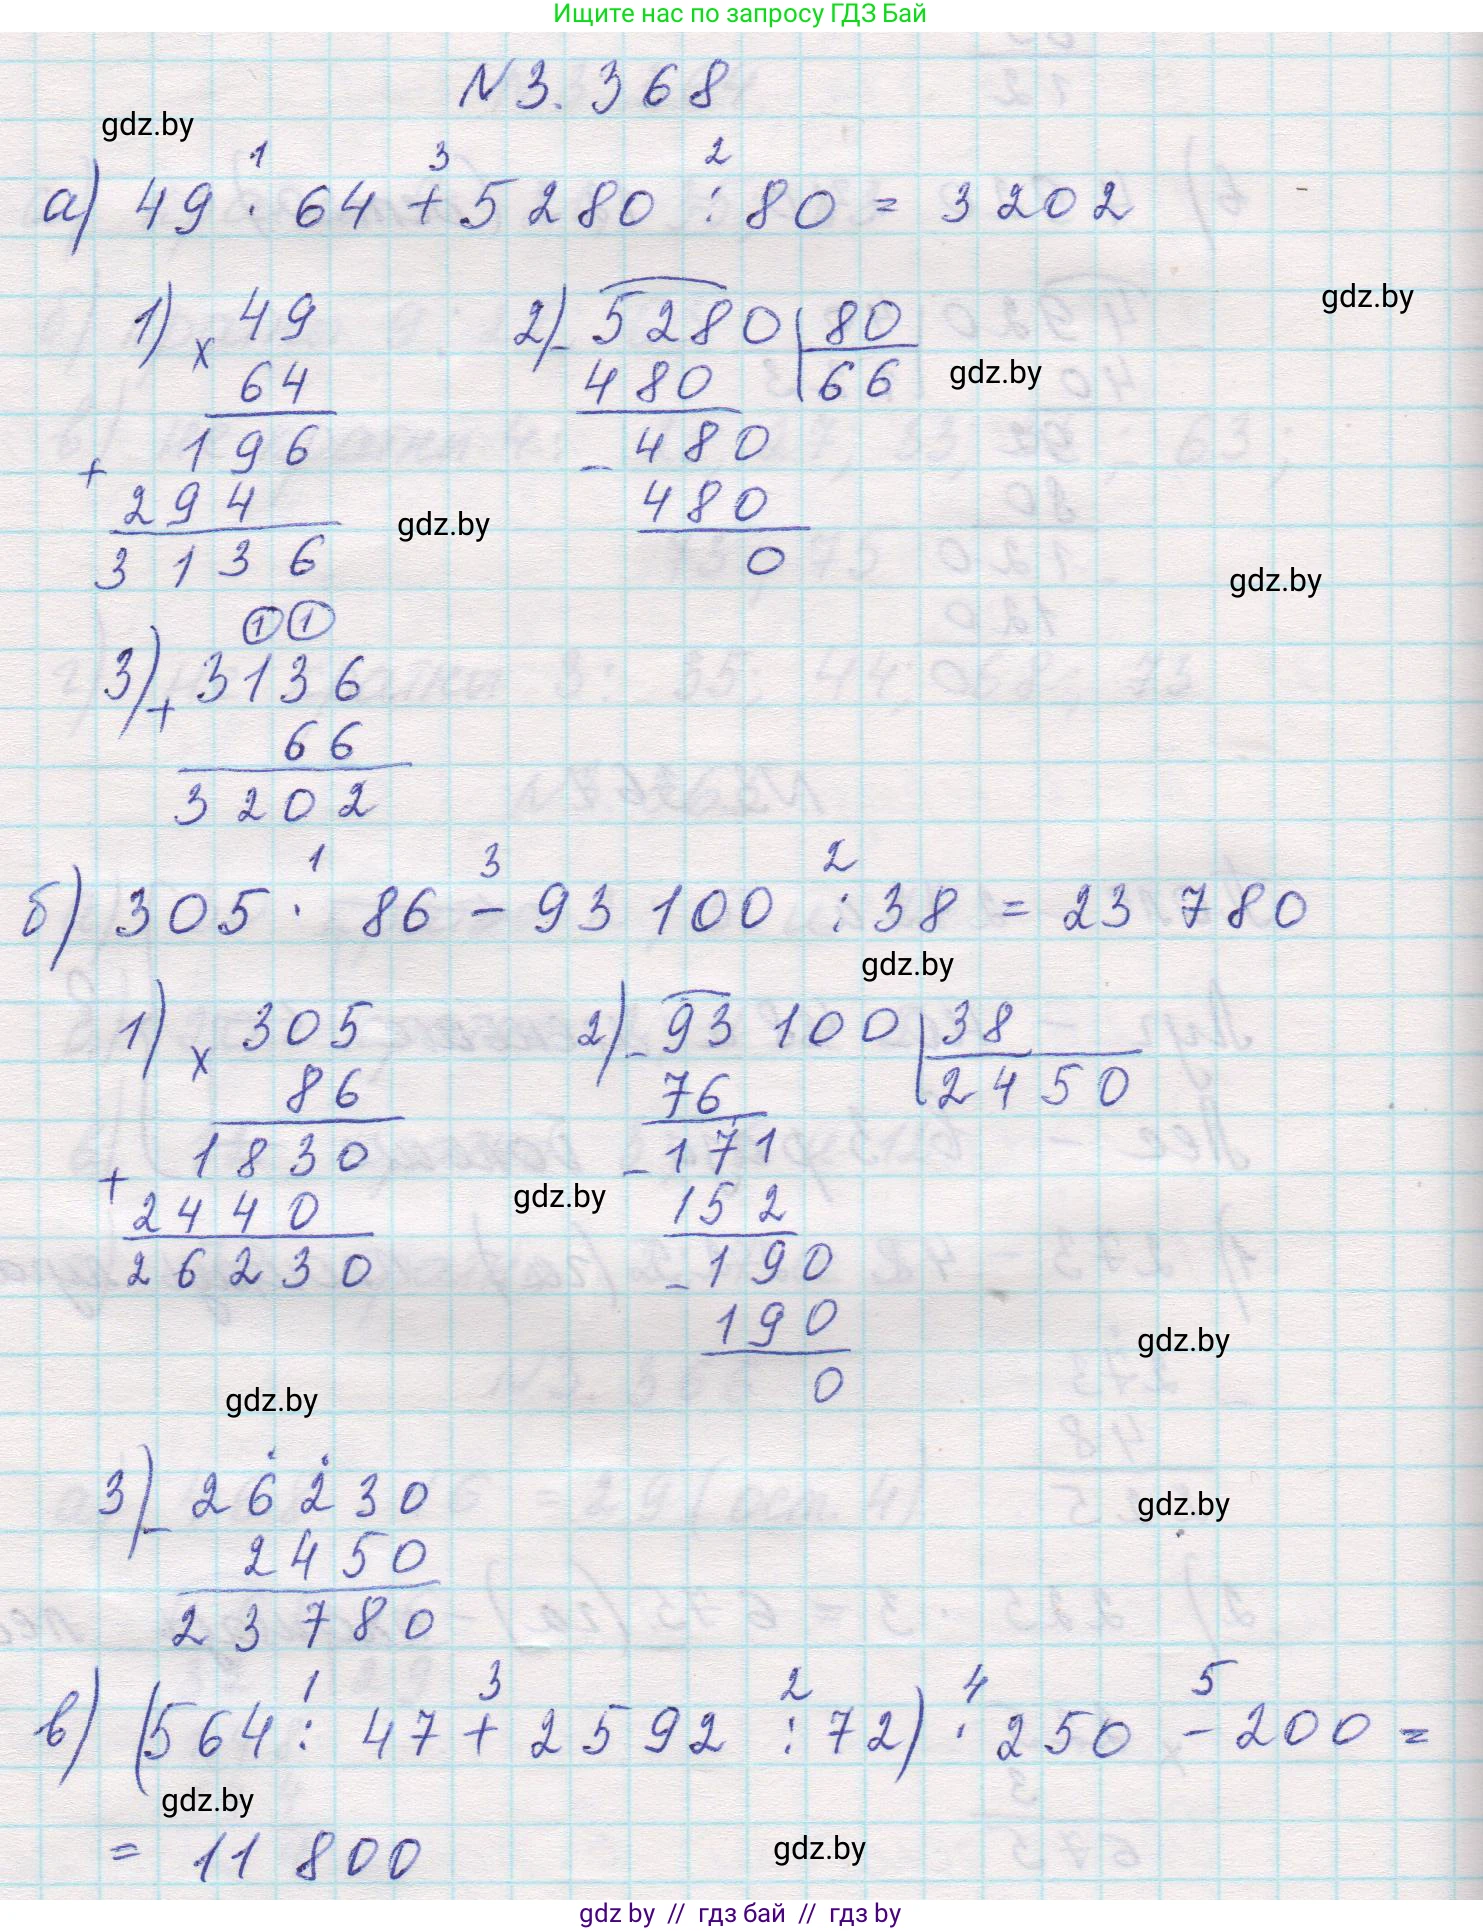 Ищите нас по запросу ГДЗ Бай
N 3.368
gdz.by
1 3 2
а) 49 · 64 + 5280 : 80 = 3202
gdz.by
1) 49 2) - 5280 80
x 64 480 66
gdz.by
196 - 480
+ 294 480
gdz.by
3136 0
gdz.by
1 1
3) + 3136
66
3202
1 3 2
б) 305 · 86 - 93 100 : 38 = 23 780
gdz.by
1) x 305 2) - 93 100 38
86 76 2450
1830 - 171
+ 2440 152
gdz.by
26230 - 190
190
gdz.by
0
gdz.by
3) - 26230
gdz.by
2450
23780
1 3 2 4 5
в) (564 : 47 + 2592 : 72) · 250 - 200 =
gdz.by
= 11 800
gdz.by
gdz by // гдз бай // гдз by